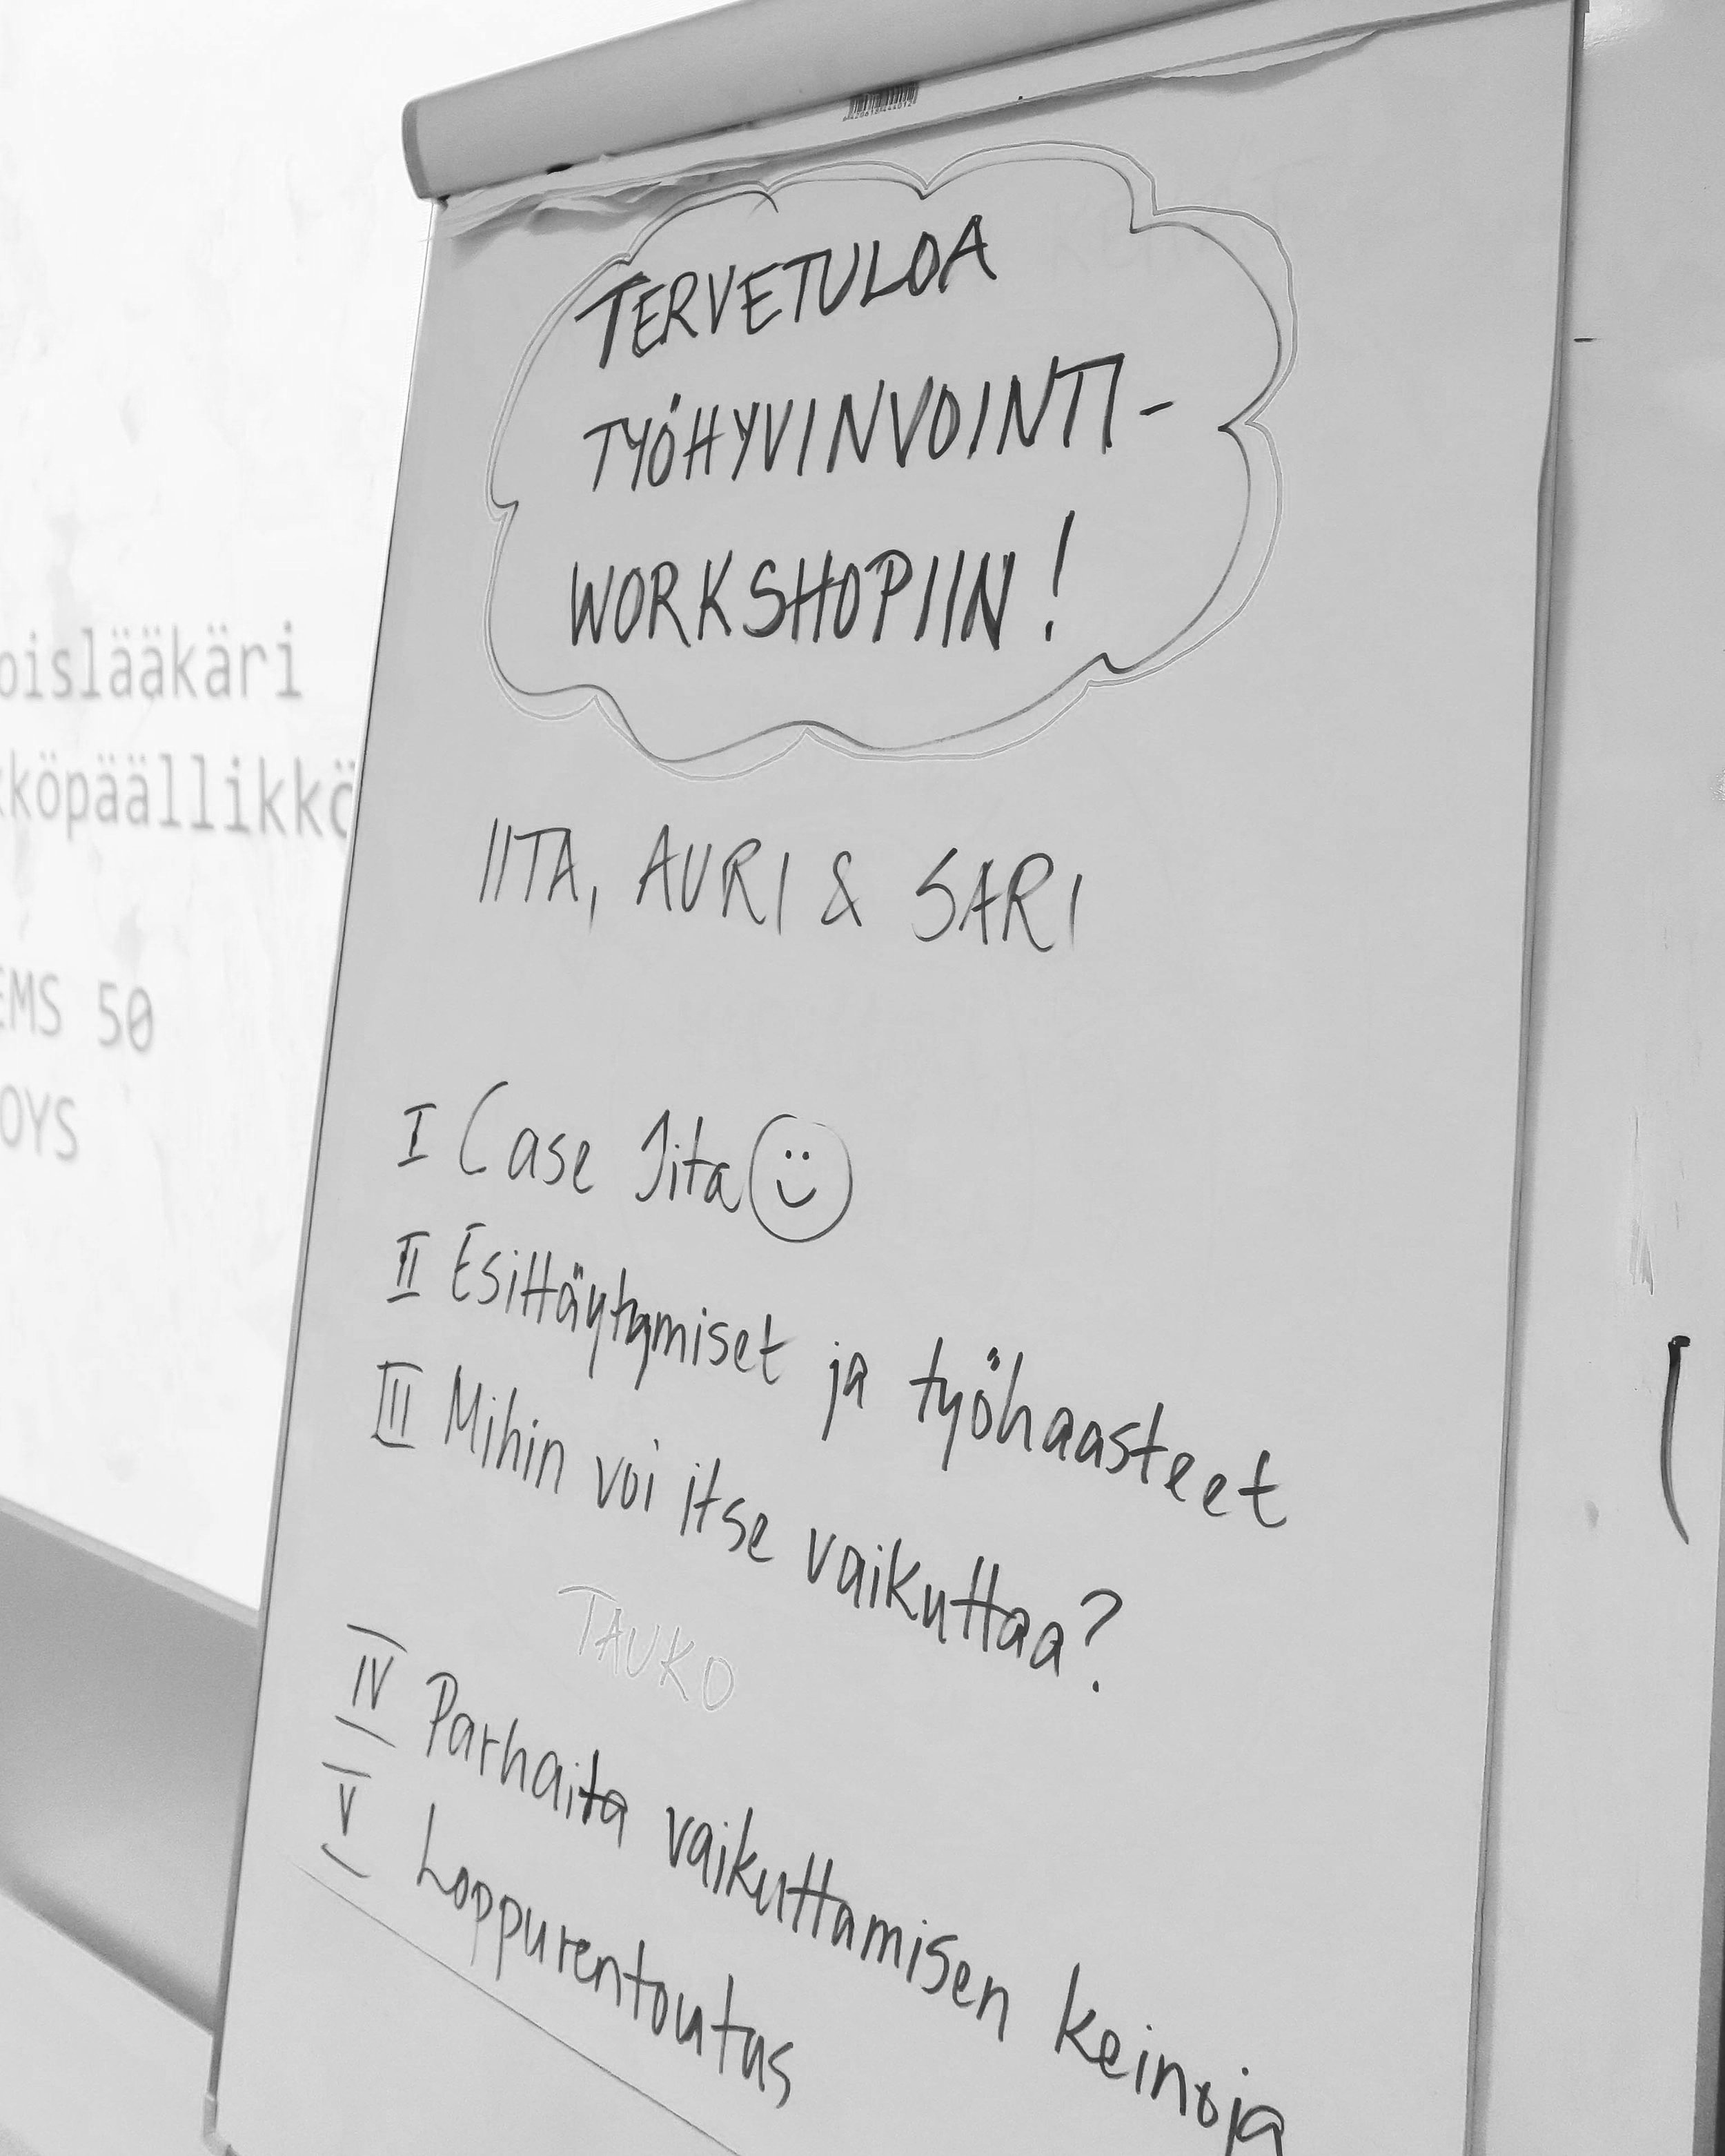 TERVETULOA
TYÖHYVINVOINTI-
WORKSHOPIIN!
IITA, AURI & SARI
I Case Iita
II Esittäytymiset ja työhaasteet
III Mihin voi itse vaikuttaa?
TAUKO
IV Parhaita vaikuttamisen keinoja
V Loppurentoutus
oislääkäri
köpäällikkö
EMS 50
OYS